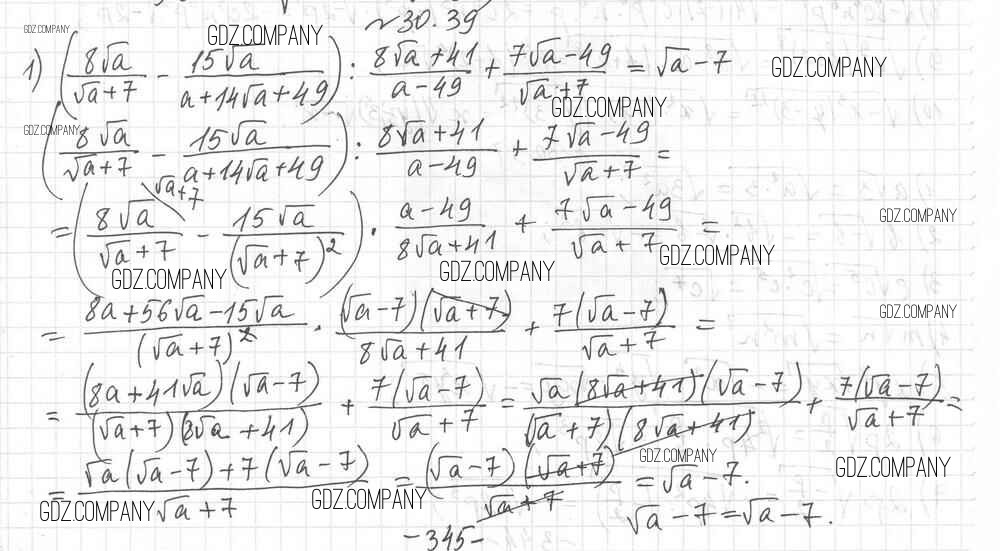 №30.39
GDZ.COMPANY GDZ.COMPANY
1) (8√a/(√a+7) - 15√a/(a+14√a+49)) : (8√a+41)/(a-49) + (7√a-49)/(√a+7) = √a-7 GDZ.COMPANY
GDZ.COMPANY GDZ.COMPANY
(8√a/(√a+7) - 15√a/(a+14√a+49)) : (8√a+41)/(a-49) + (7√a-49)/(√a+7) =
√a+7
= (8√a/(√a+7) - 15√a/(√a+7)²) · (a-49)/(8√a+41) + (7√a-49)/(√a+7) = GDZ.COMPANY
GDZ.COMPANY GDZ.COMPANY GDZ.COMPANY
= (8a+56√a-15√a)/(√a+7)² · (√a-7)(√a+7)/(8√a+41) + 7(√a-7)/(√a+7) = GDZ.COMPANY
= (8a+41√a)(√a-7)/((√a+7)(8√a+41)) + 7(√a-7)/(√a+7) = √a(8√a+41)(√a-7)/((√a+7)(8√a+41)) + 7(√a-7)/(√a+7) =
= (√a(√a-7)+7(√a-7))/(√a+7) = (√a-7)(√a+7)/(√a+7) = √a-7. GDZ.COMPANY GDZ.COMPANY
GDZ.COMPANY GDZ.COMPANY √a-7=√a-7.
-345-